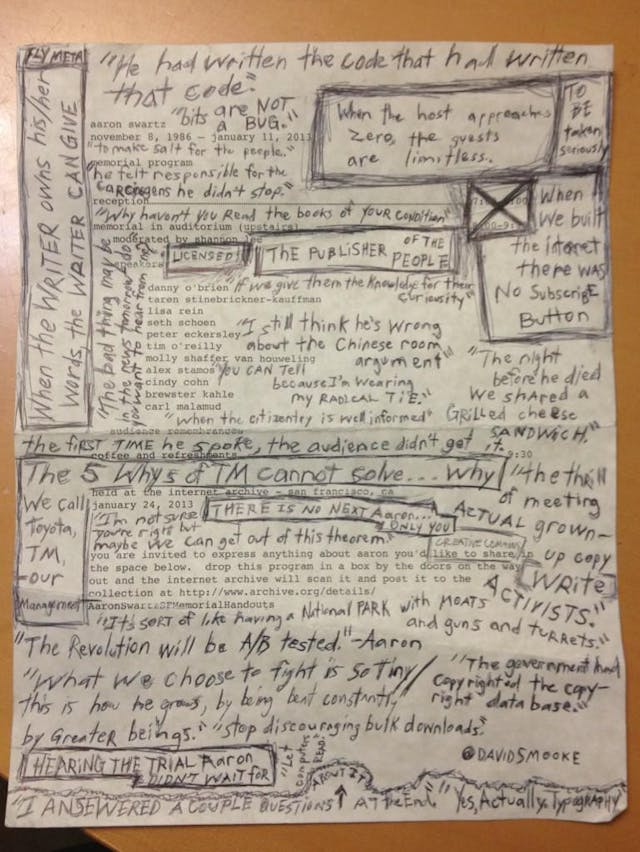 FLY META
"He had written the code that had written
that code."
"bits are NOT
a BUG."
When the WRITER owns his/her
words, the WRITER CAN GIVE
When the host approaches
zero, the guests
are limitless.
TO
BE
taken
seriously
aaron swartz
november 8, 1986 – january 11, 2013
"to make salt for the people."
memorial program
he felt responsible for the
he didn't stop."
reception
"Why haven't YOU Read the books of YOUR CONDITION"
memorial in auditorium (upstairs)
moderated by shannon lee
speakers
LICENSED!
THE PUBLISHER OF THE
PEOPLE
When
we built
the interet
there was
No Subscribe
Button
"The bad thing may be
in the news tomorrow. Don't
you want to hear from me"
danny o'brien
"If we give them the Knowledge for their
curiousity"
taren stinebrickner-kauffman
lisa rein
seth schoen
peter eckersley
tim o'reilly
molly shaffer van houweling
alex stamos
cindy cohn
brewster kahle
carl malamud
"I still think he's wrong
about the Chinese room
argument"
"YOU CAN Tell
because I'm wearing
my RADICAL TIE."
"The night
before he died
we shared a
Grilled cheese
SANDWICH."
"when the citizentry is well informed"
audience remembrances
the FIRST TIME he spoke, the audience didn't get it.
coffee and refreshments
9:30
The 5 Whys of TM cannot solve... why
held at the internet archive – san francisco, ca
january 24, 2013
We call
Toyota,
TM,
our
Management
"I'm not sure
you're right but
maybe we can get out of this theorem."
THERE IS NO NEXT Aaron...
ONLY YOU
CREATIVE COMMONS
"the thrill
of meeting
ACTUAL grown-
up copy
WRITE
ACTIVISTS."
you are invited to express anything about aaron you'd like to share in
the space below. drop this program in a box by the doors on the way
out and the internet archive will scan it and post it to the
collection at http://www.archive.org/details/
AaronSwartzSFMemorialHandouts
"It's sort of like having a National PARK with MOATS
and guns and turrets."
"The Revolution will be A/B tested."-Aaron
"What we choose to fight is so tiny/
this is how he grows, by being beat constantly
by Greater beings."
"The government had
copyrighted the copy-
right data base."
"stop discouraging bulk downloads."
@DAVIDSMOOKE
HEARING THE TRIAL Aaron
DIDN'T WAIT for
"Let
computers
READ."
ABOUT IT
"I ANSEWERED A COUPLE QUESTIONS ↑ AT the End."
"Yes, Actually. Typography"